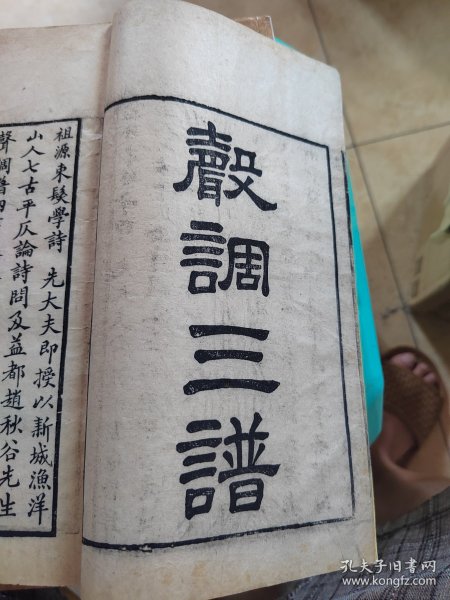 聲調三譜
祖源束髮學詩 先大夫即授以新城漁洋
山人七古平仄論詩問及益都趙秋谷先生
聲調譜
孔夫子旧书网
www.kongfz.com